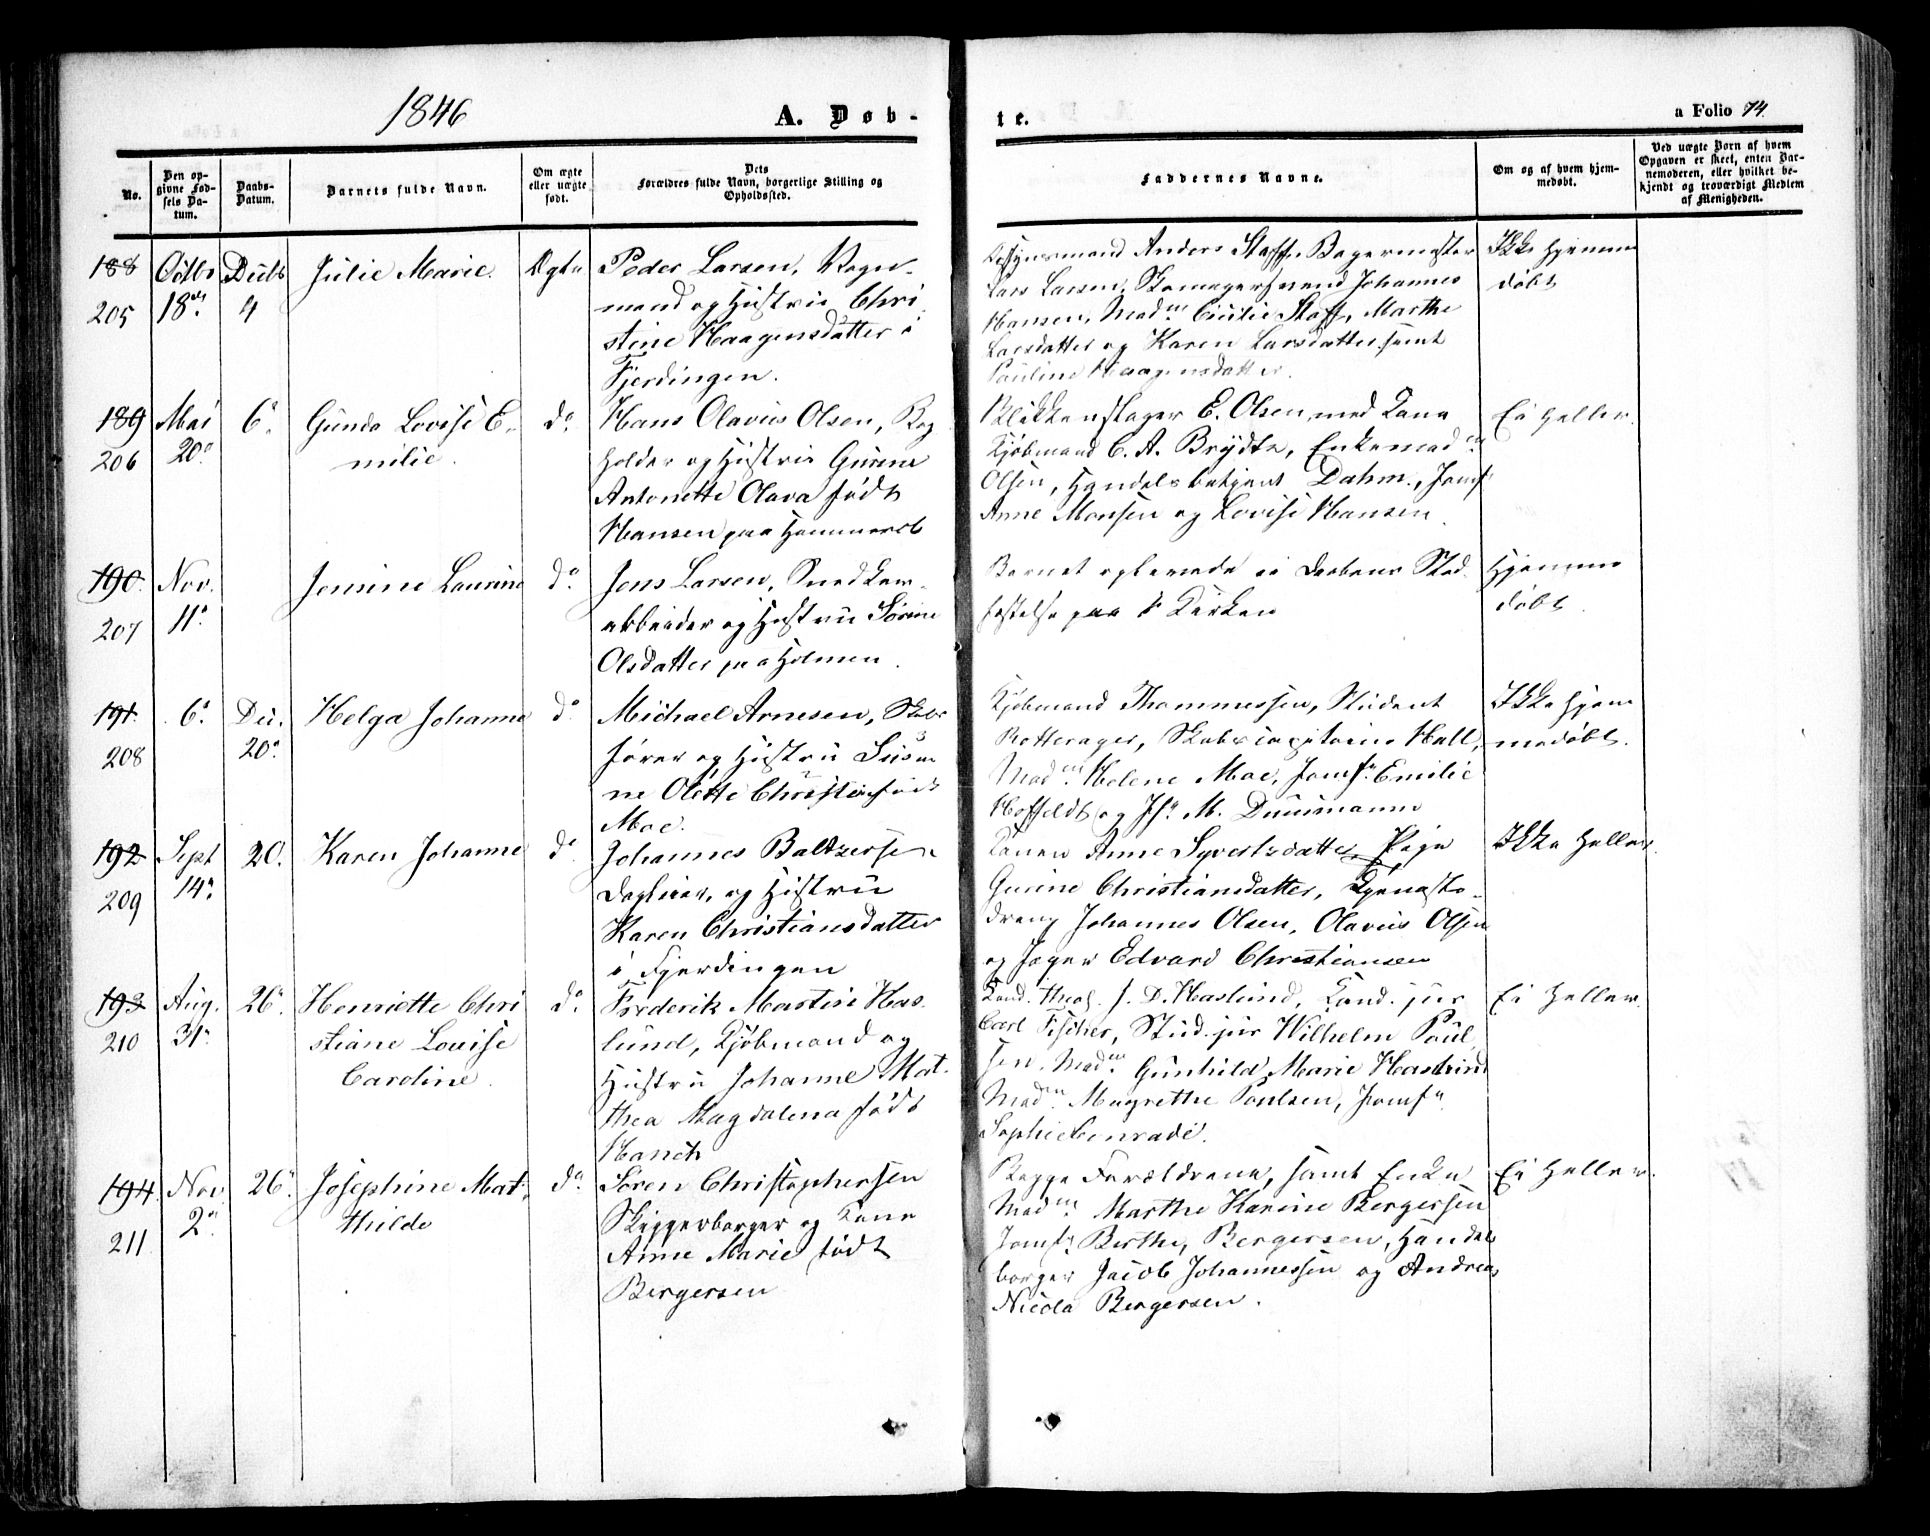 1846
A. Døb-
te.
a Folio 74.
No.
Den op-
givne Fød-
sels Da-
tum.
Daabs-
Datum.
Barnets fulde Navn.
Om ægte
eller uægte
født.
Dets
Forældres fulde Navn, borgerlige Stilling og
Opholdssted.
Faddernes Navne.
Om og af hvem hjem-
medøbt.
Ved uægte Børn af hvem
Opgaven er skeet, enten Bar-
nemoderen, eller hvilket be-
kjendt og troværdigt Medlem
af Menigheden.
188
205
Octbr
18de
Decb
4
Julie Marie.
Ægte
Peder Larsen, Vogn-
mand og Hustru Chri
stine Haagensdatter i
Fjerdingen.
Anders Staff, Bagermester
Lars Larsen, Skomagersvend Johannes
Hansen, Madm Cicilie Staff, Marthe
Larsdatter og Karen Larsdatter samt
Pauline Haagensdatter.
Ikke hjemme
døbt
189
206
Mai
20de
6te
Gunda Lovise E-
milie.
do.
Hans Olavus Olsen, Bog
holder og Hustru Gurine
Antonette Olava født
Hansen paa Hammersb
Blikkenslager E. Olsen med Kone
Kjøbmand C. A. Brydtz, Enkemadm
Olsen, Handelsbetjent Dahm, Jomf
Anne Monsen og Lovise Hansen.
Ei heller.
190.
207
Nov.
11te
Jensine Laurine
do.
Jens Larsen, Snedker-
arbeider og Hustru Sørine
Olsdatter paa Holmen.
Barnet oplevede ei Daabens Stad
fæstelse paa Kirken
Hjemme
døbt.
191.
208
6te
Dec.
20de
Helga Johanne
do
Michael Arnesen, Skibs
fører og Hustru Susan
ne Olette Christine født
Moe.
Kjøbmand Thommessen, Student
Rotterager, Skibscapitaine Hall,
Madm Helene Moe, Jomf. Emilie
Hoffeldt og Jf. M. Duusmann
Ikke hjem
medøbt.
192
209
Sept
14de
20.
Karen Johanne
do
Johannes Baltzersen
Dagleier, og Hustru
Karen Christiansdatter
i Fjerdingen
Konen Anne Syvertsdatter, Pige
Gurine Christiansdatter, Tjeneste-
dreng Johannes Olsen, Olavus Olsen
og Jæger Edvard Christiansen
Ikke heller.
193
210
Aug.
31te
26de
Henriette Chri
stiane Louise
Caroline.
do.
Frederik Martin Has
lund, Kjøbmand og
Hustru Johanne Mat-
thea Magdalena født
Hanch
Cand. theol. J. D. Haslund, Cand. jur
Carl Fischer, Stud. jur Wilhelm Poul
sen, Madm Gunhild Marie Haslund
Madm Magrethe Poulsen, Jomf
Sophie Conradi.
Ei heller.
194.
211
Nov.
2den
26de
Josephine Mat
thilde
do.
Søren Christophersen
Skipperborger og Kone
Anne Marie født
Bergersen
Begge Forældrene, samt Enke
Madm Marthe Karine Bergersen
Jomf. Berthe Bergersen, Handels
borger Jacob Johannessen og Andreas
Nicola Bergersen.
Ei heller.